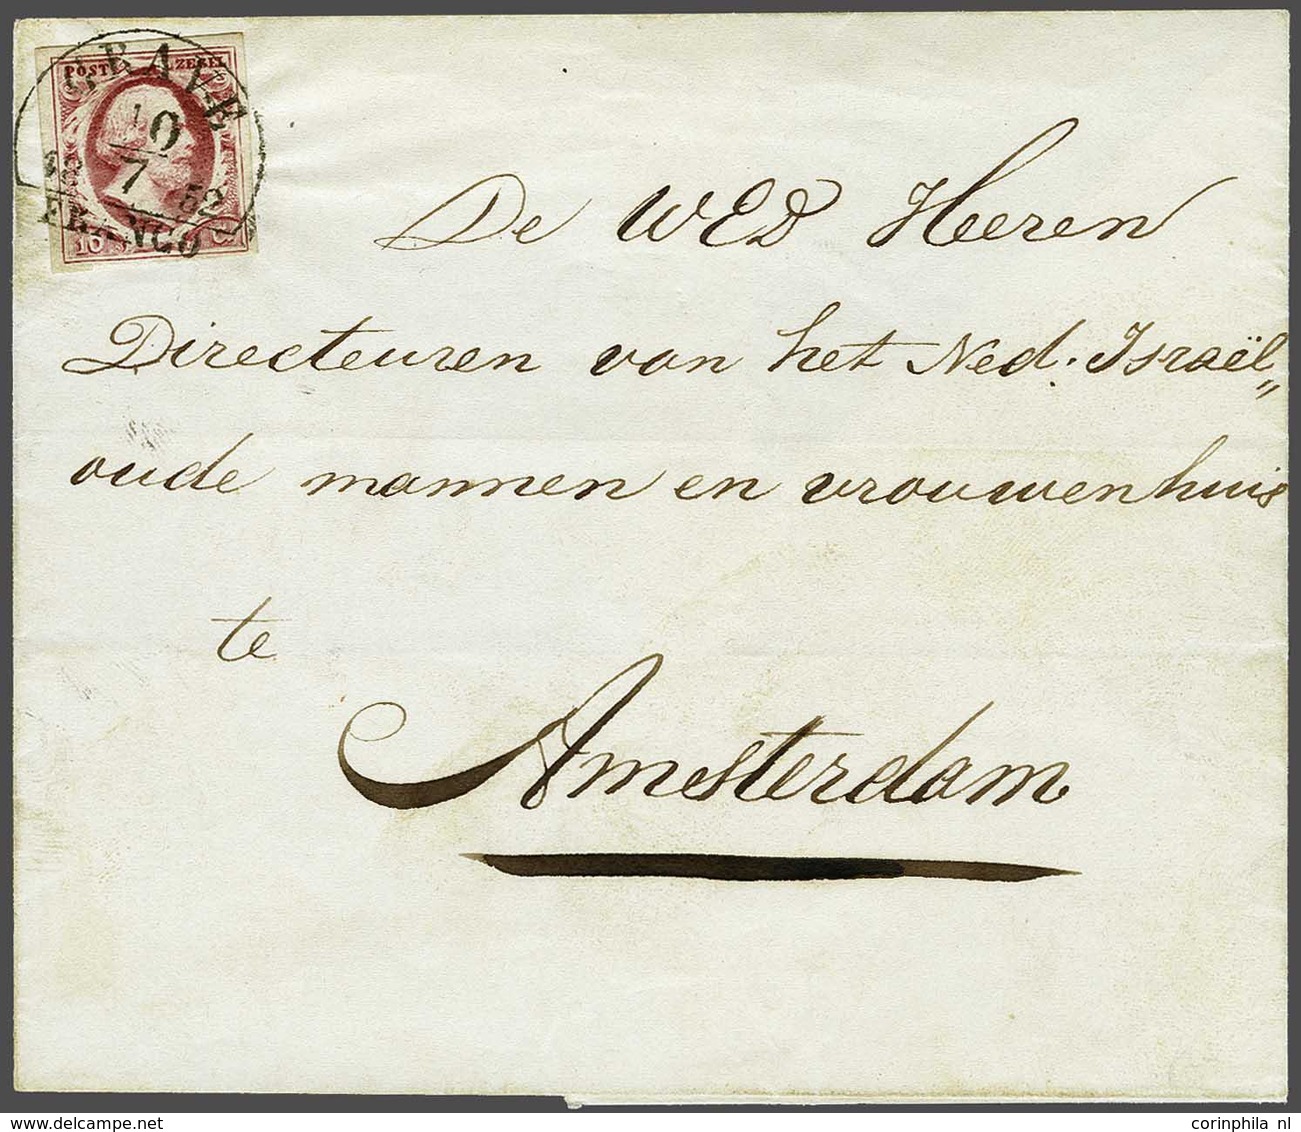 POST ZEGEL
GRAVE
10
7
18 52
FRANCO
10 C
De WED Heeren
Directeuren van het Ned. Israël„
oude mannen en vrouwenhuis
te
Amsterdam
delcampe.net
corinphila nl